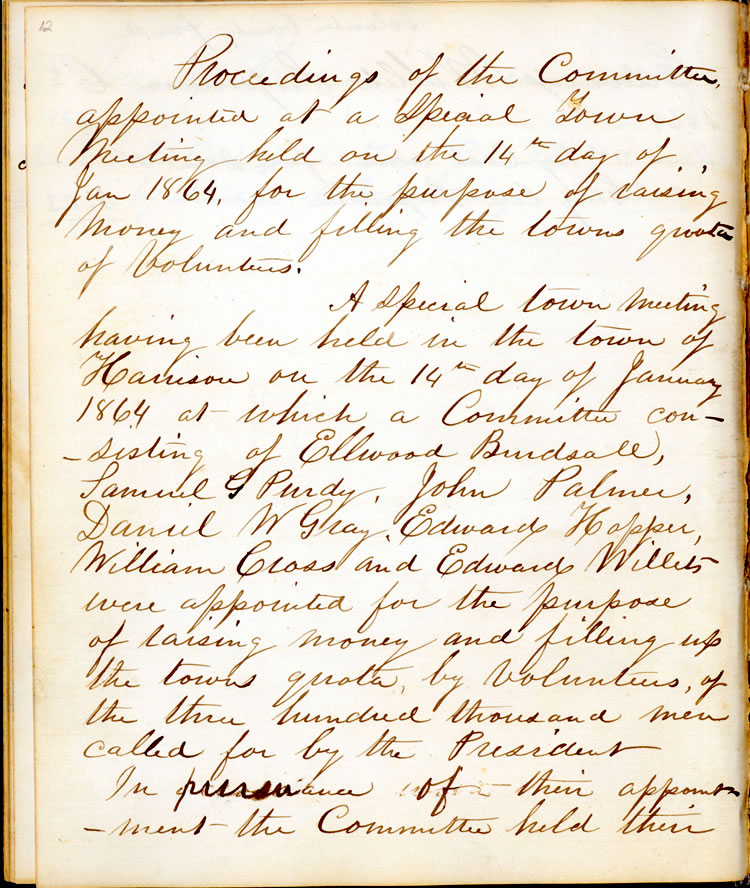 12
Proceedings of the Committee,
appointed at a Special Town
Meeting held on the 14th day of
Jan 1864, for the purpose of raising
Money and filling the towns quota
of Volunteers.
A Special town meeting
having been held in the town of
Harrison on the 14th day of January
1864 at which a Committee con-
-sisting of Ellwood Burdsall,
Samuel G Purdy, John Palmer,
Daniel W Gray, Edward Hopper,
William Cross and Edward Willets
were appointed for the purpose
of raising money and filling up
the towns quota, by Volunteers, of
the three hundred thousand men
called for by the President
In pursuance of their appoint-
-ment the Committee held their